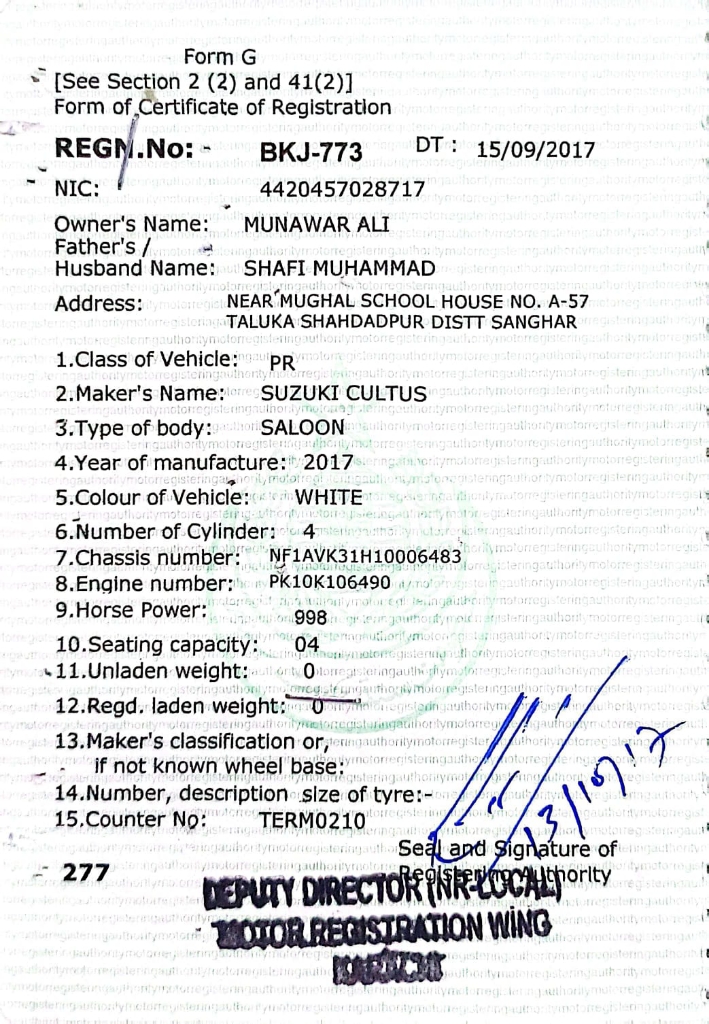 Form G
[See Section 2 (2) and 41(2)]
Form of Certificate of Registration
REGN.No: - BKJ-773 DT : 15/09/2017
NIC: 4420457028717
Owner's Name: MUNAWAR ALI
Father's /
Husband Name: SHAFI MUHAMMAD
Address: NEAR MUGHAL SCHOOL HOUSE NO. A-57
TALUKA SHAHDADPUR DISTT SANGHAR
1.Class of Vehicle: PR
2.Maker's Name: SUZUKI CULTUS
3.Type of body: SALOON
4.Year of manufacture: 2017
5.Colour of Vehicle: WHITE
6.Number of Cylinder: 4
7.Chassis number: NF1AVK31H10006483
8.Engine number: PK10K106490
9.Horse Power: 998
10.Seating capacity: 04
11.Unladen weight: 0
12.Regd. laden weight: 0
13.Maker's classification or,
if not known wheel base:
14.Number, description size of tyre:-
15.Counter No: TERM0210
13/10/17
Seal and Signature of
Registering Authority
277
DEPUTY DIRECTOR (NR-LOCAL)
MOTOR REGISTRATION WING
KARACHI